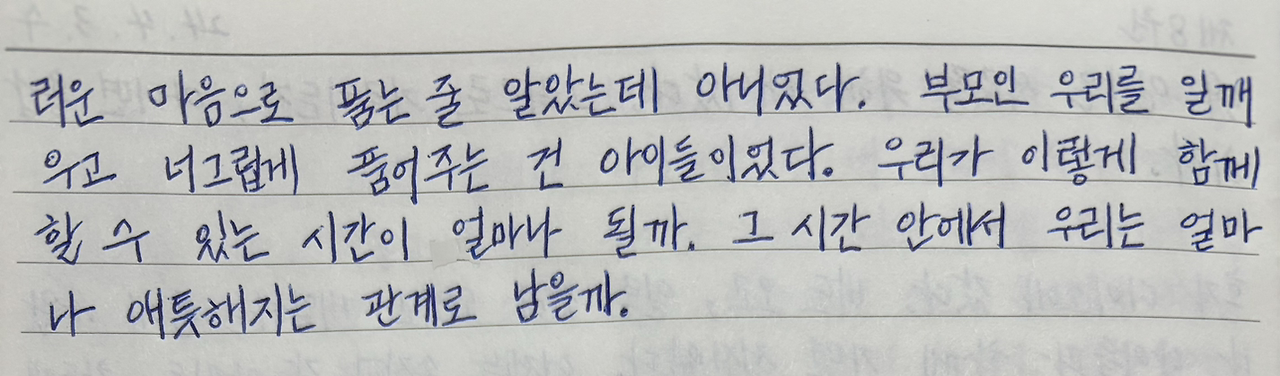 러운 마음으로 품는 줄 알았는데 아니었다. 부모인 우리를 일깨
우고 너그럽게 품어주는 건 아이들이었다. 우리가 이렇게 함께
할 수 있는 시간이 얼마나 될까. 그 시간 안에서 우리는 얼마
나 애틋해지는 관계로 남을까.